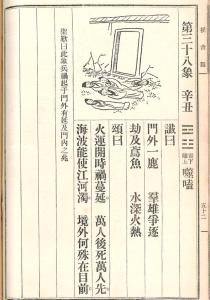 推背圖
五十二
第三十八象 辛丑
震下
離上
噬嗑
讖曰
門外一鹿 羣雄爭逐
劫及鳶魚 水深火熱
頌曰
火運開時禍蔓延 萬人後死萬人先
海波能使江河濁 境外何殊在目前
聖歎曰此象兵禍起於門外有延及門內之兆